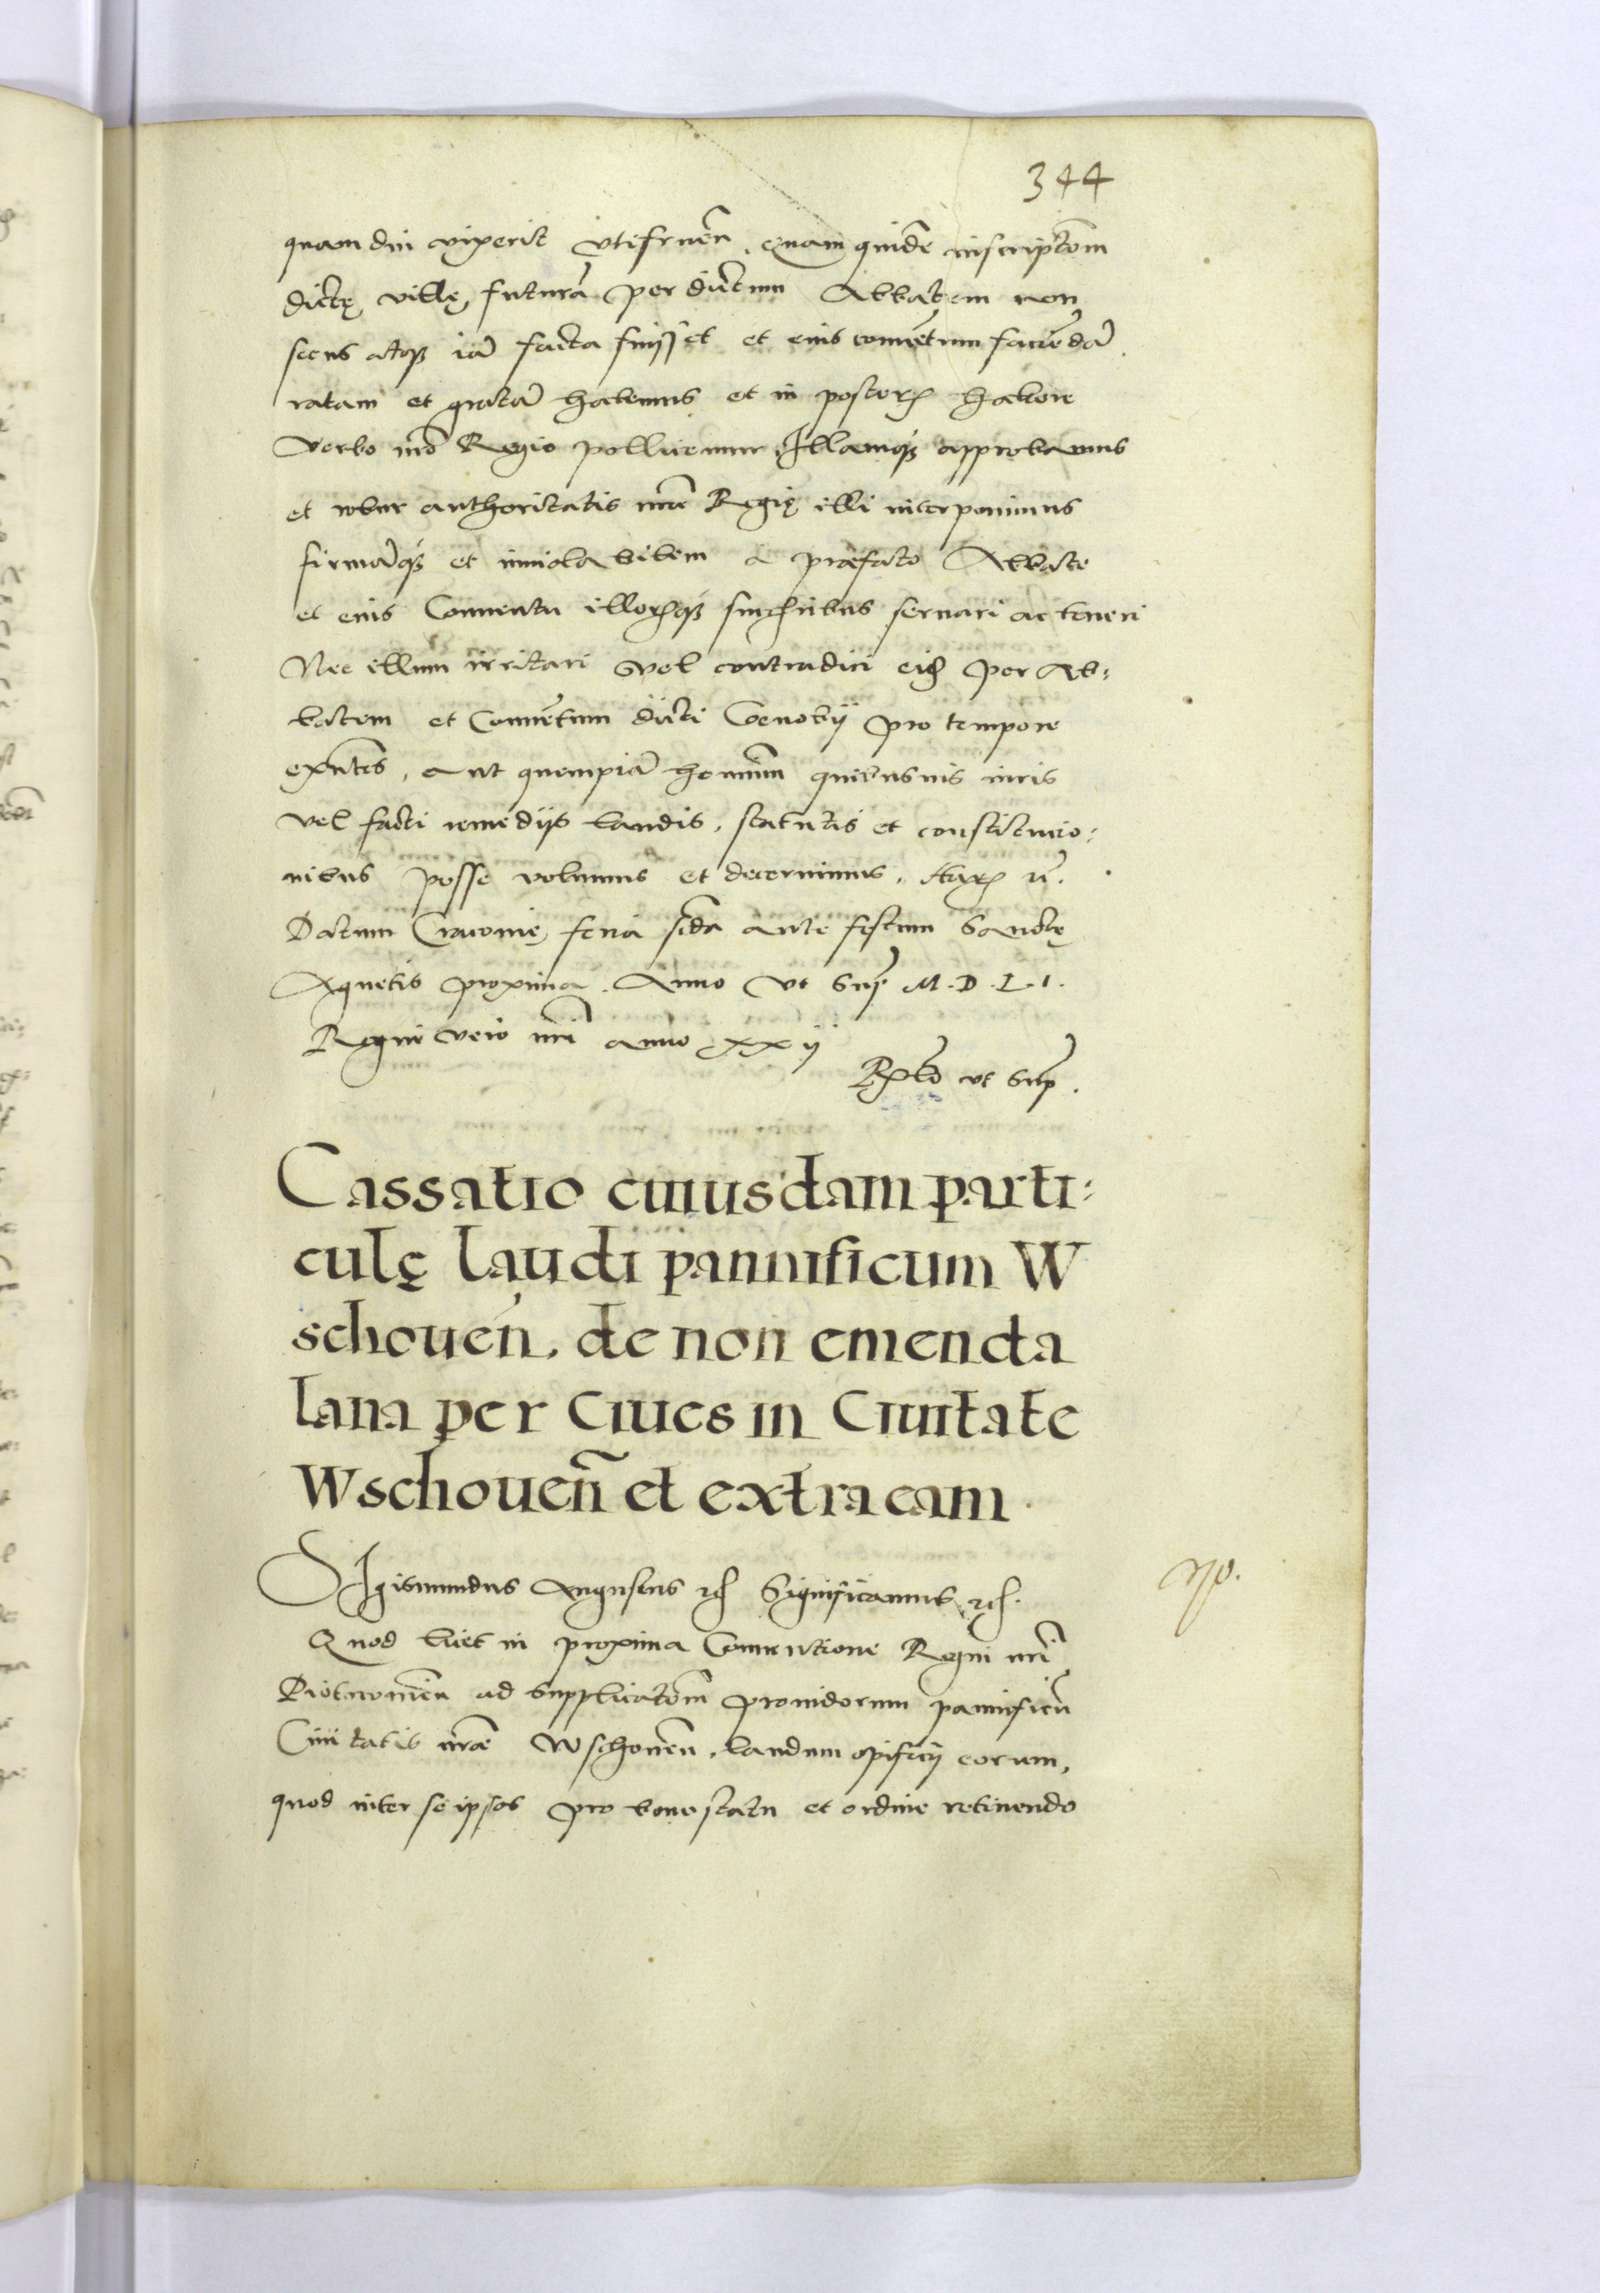 344
quamdiu vixerit vtifruen̄. Quam quidē inscriptōm
dictę villę futurā per dictum Abbatem non
secus atq3 iā facta fuisset et eius conuētum faciēdā
ratam et gratā habemus et in posterꝝ habere
Verbo nrō Regio pollicemur. Illamq3 approbamus
et robur authoritatis nrae Regię illi interponimus
firmāq3 et inuiolabilem a praefato Abbate
et eius Conuentu illorꝝq3 successoribus seruari ac teneri
Nec illum irritari vel contradici eiq3 per Ab:
batem et Conuētum dicti Coenobij pro tempore
exn̄tes, aut quempiā hominū quibusuis iuris
vel facti remedijs laudis, statutis et constitucio:
nibus posse volumus et decernimus. Harꝝ &c.
Datum Cracouię feria scđa ante festum Sanctę
Agnetis proxima. Anno Vt Supꝛ M.D.L.I.
Regni vero nrī anno xxij
Rꝑtō vt Supꝛ.
Cassatio cuiusdam parti:
culę laudi pannificum W
schouen̄. de non emenda
lana per Ciues in Ciuitate
Wschouen̄ et extra eam.
SIgismundus Augustus &c Significamus &c.
Quod licet in proxima Conuentione Regni nrī
Piotrcouien̄ ad supplicatōm prouidorum pannificū
Ciuitatis nrae Wschouen̄. laudum opificij eorum,
quod inter se ipsos pro bono statu et ordine retinendo